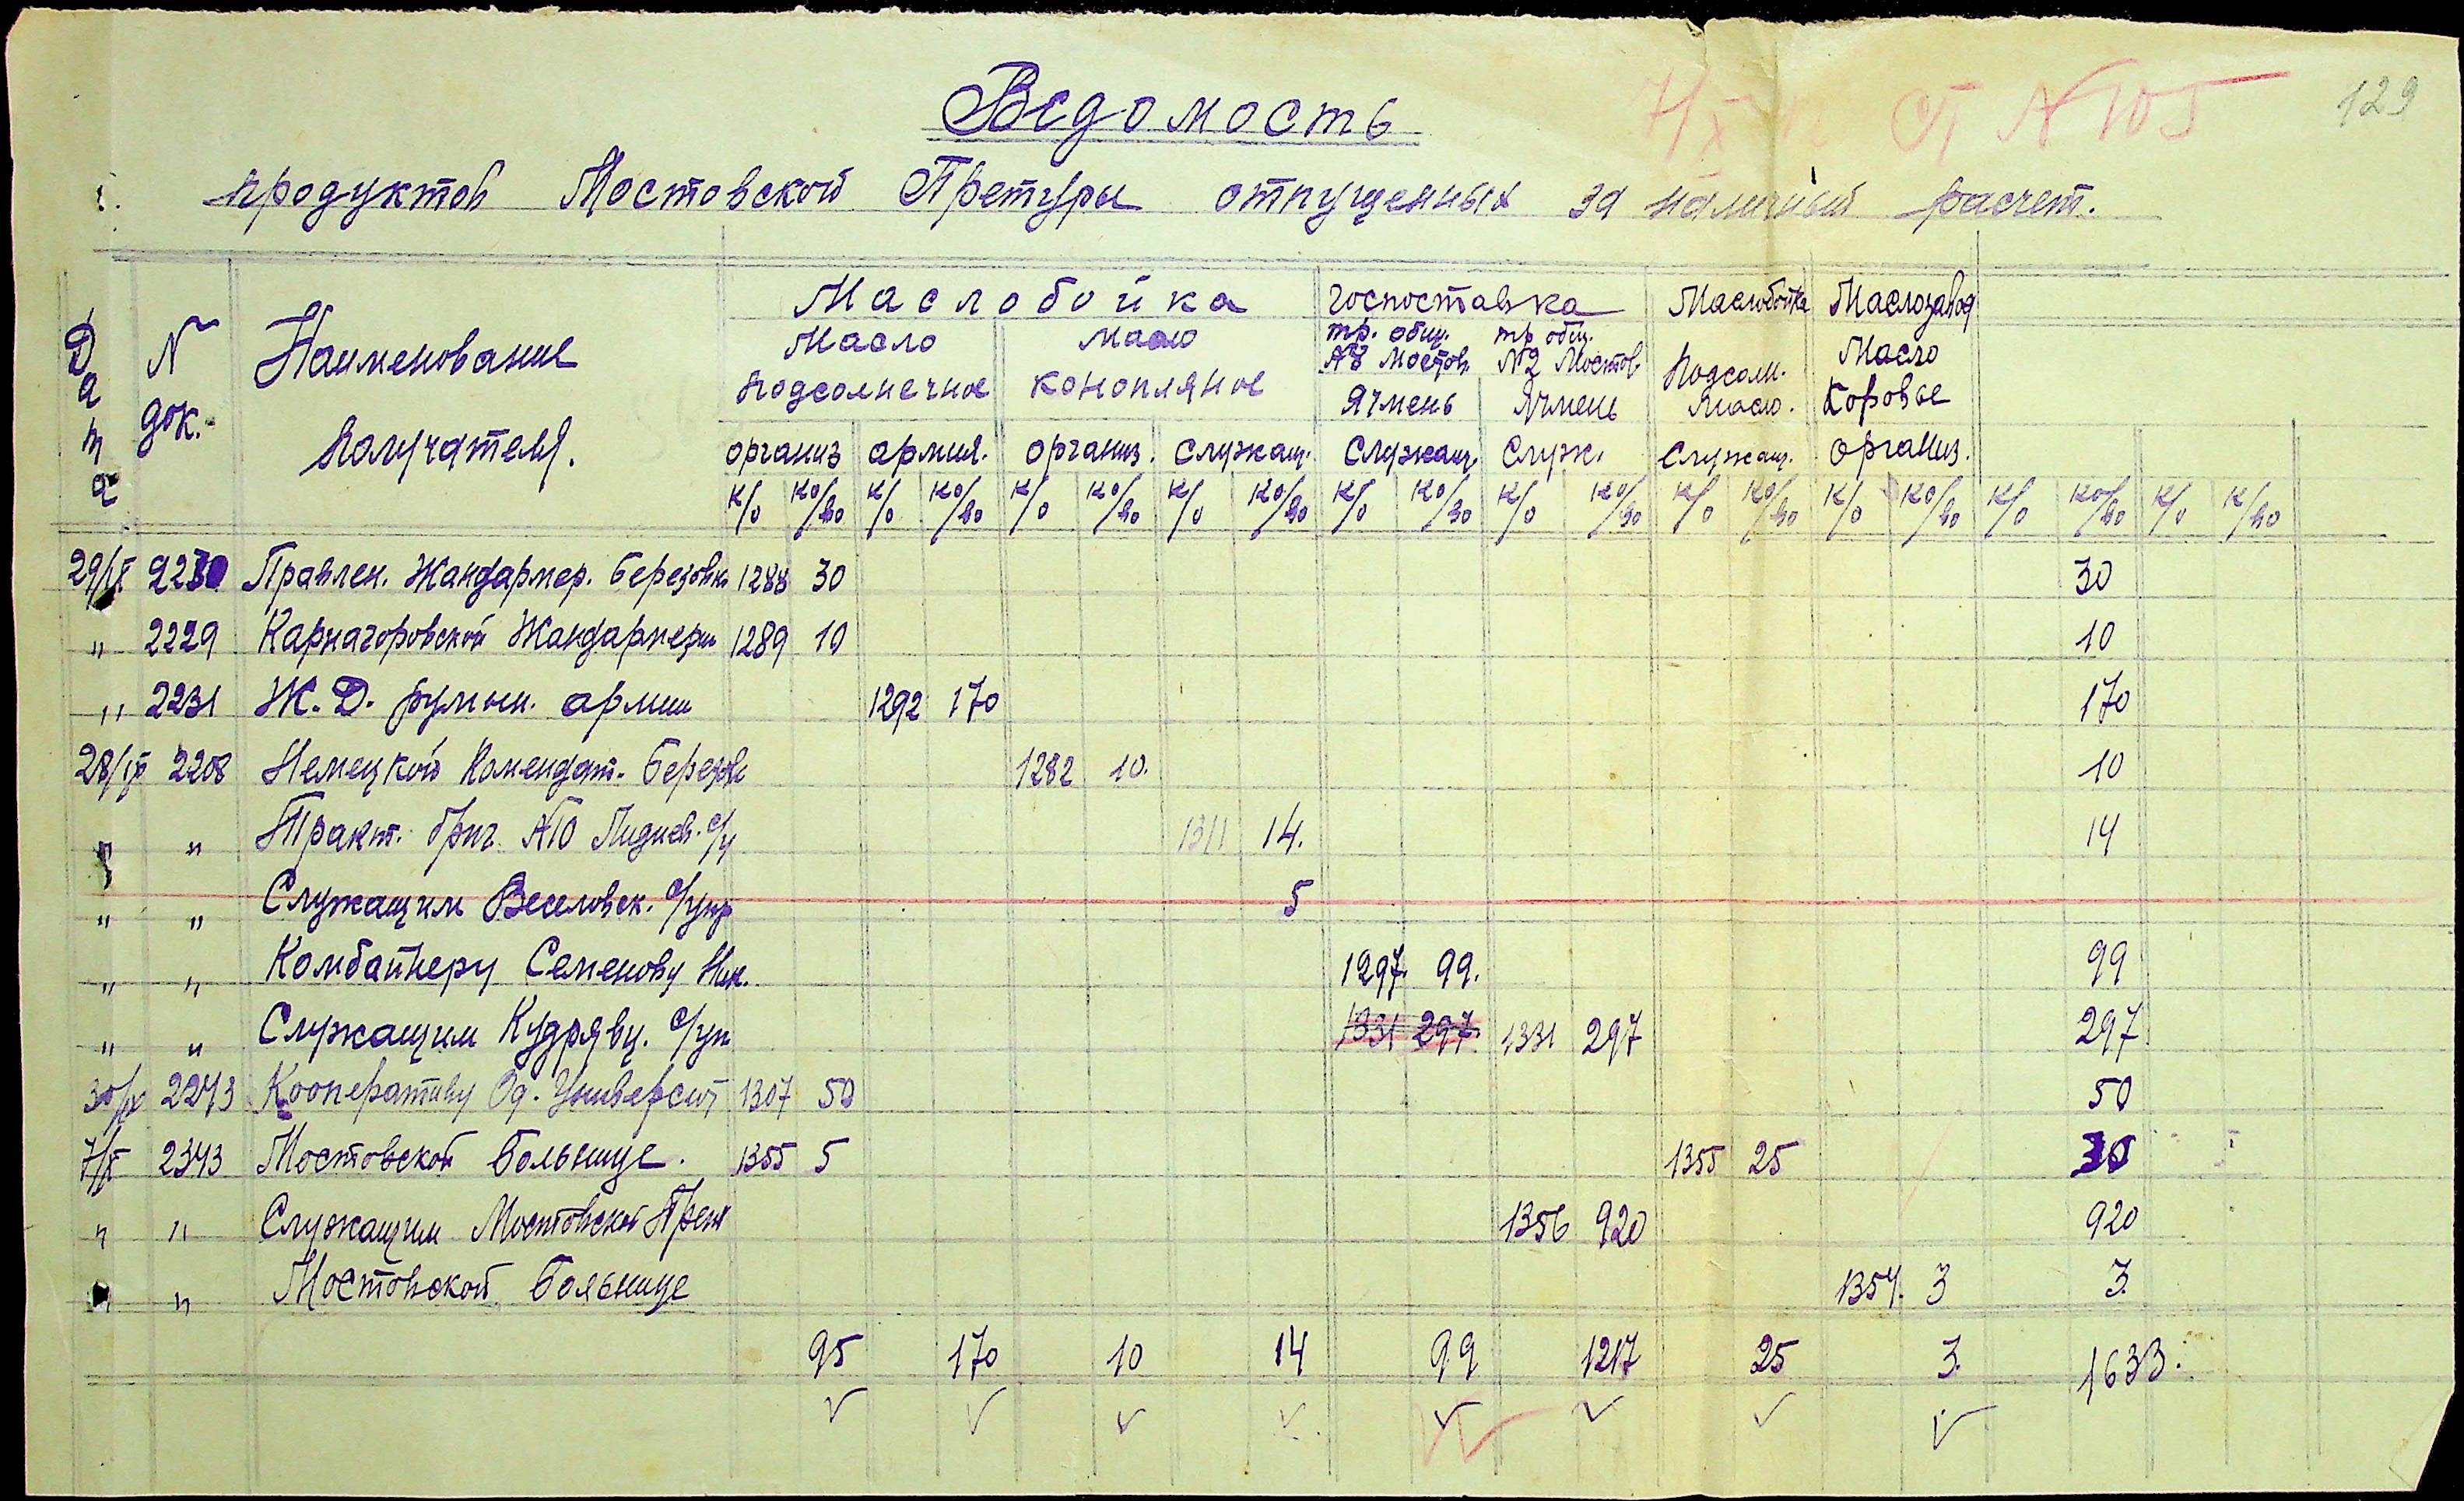 Ведомость
7/X СТ N 105
129
продуктов Мостовской Претуры отпущенных за наличный расчет.
Дата N док. Наименование получателя.
Маслобойка Госпоставка Маслобойка Маслозавод
Масло подсолнечное Масло конопляное тр. общ. Мостов. Ячмень тр общ. N2 Мостов. Ячмень Подсолн. Масло. Масло Коровье
организ армия. организ. служащ. Служащ. Служ. Служащ. Организ.
к/о ко/во к/о ко/во к/о ко/во к/о ко/во к/о ко/во к/о ко/во к/о ко/во к/о ко/во к/о ко/во к/о к/во
29/IX 2230 Правлен. Жандармер. Березовк 1288 30 30
" 2229 Жандармери 1289 10 10
" 2231 Ж.Д. румын. армии 1292 170 170
28/IX 2208 Немецкой Комендат. Березов 1282 10. 10
" " Тракт. бриг. N10 с/у 1311 14. 14
" " Служащим Веселовск. с/упр 5
" " Комбайнеру Семенову Ник. 1297. 99. 99
" " Служащим Кудрявц. с/уп 1331 297. 1331 297 297
30/IX 2243 Кооперативу Од. Университ 1307 50 50
7/X 2343 Мостовской больнице. 1355 5 1355 25 30
" " Служащим Мостовской Прет 1356 920 920
" " Мостовской больнице 1354. 3 3.
95 170 10 14 99 1217 25 3. 1633.